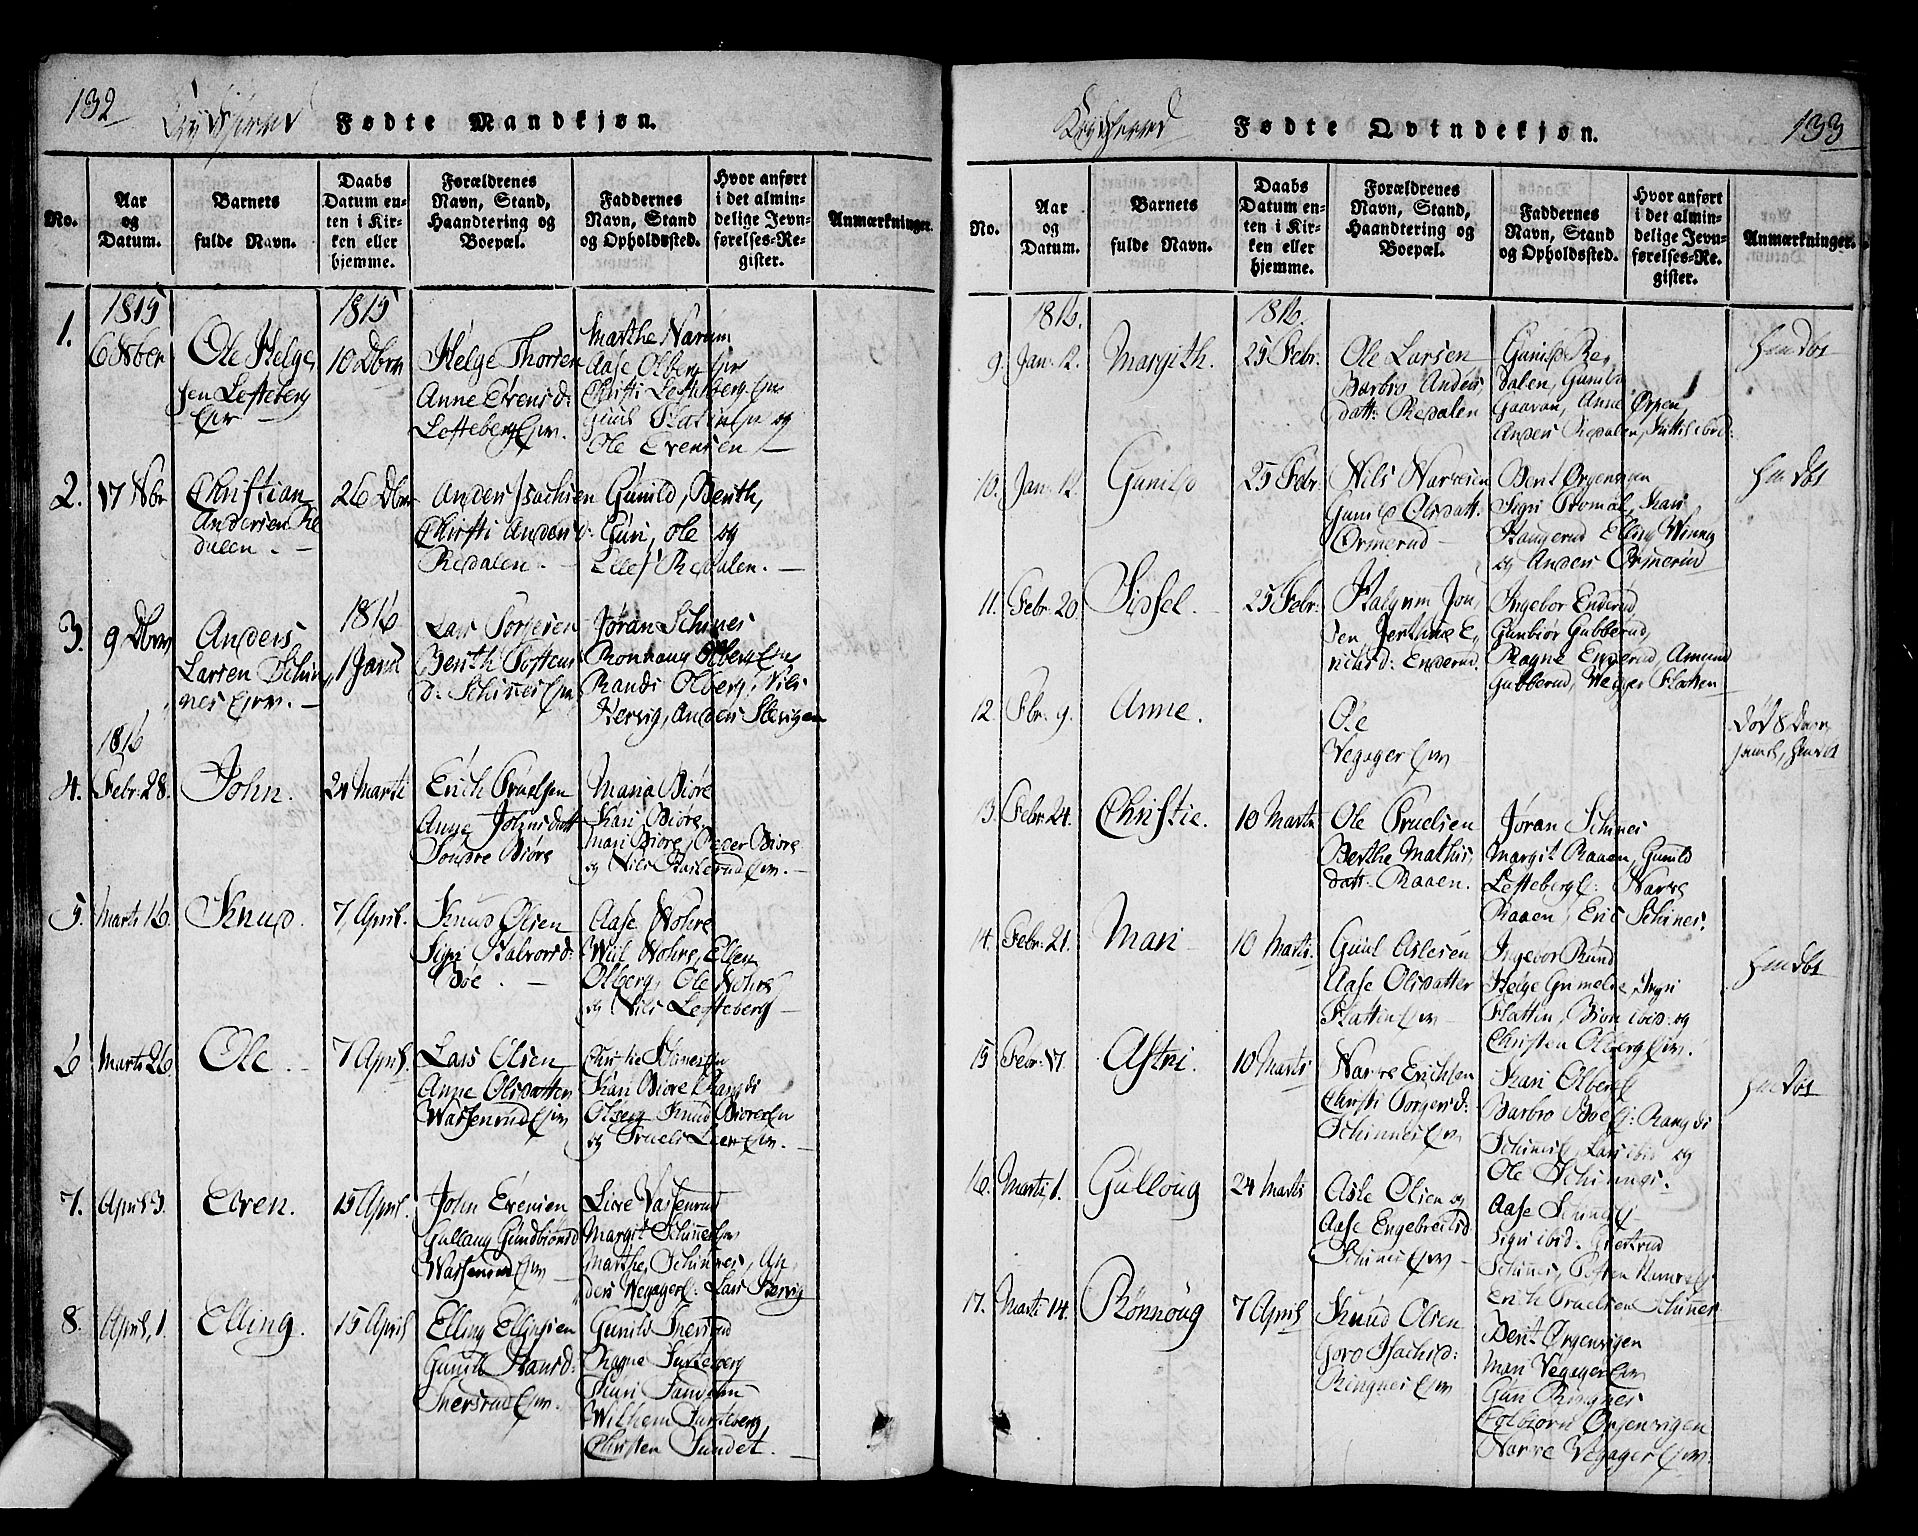 132
Krydsherred
Fødte Mandkjøn.
No.
Aar
og
Datum.
Barnets
fulde Navn.
Daabs
Datum en-
ten i Kir-
ken eller
hjemme.
Forældrenes
Navn, Stand,
Haandtering og
Boepæl.
Faddernes
Navn, Stand
og Opholdssted.
Hvor anført
i det almin-
delige Jevn-
førelses-Re-
gister.
Anmærkninger.
1.
1815
6 Nbr
Ole Helge
sen Lesteberg
Ejer
1815
10 Dbr
Helge Thorsen
Anne Evensd:
Lesteberg Ejer.
Marthe Narum
Aase Olberg Ejer
Christi Lesteberg
og
Ole Evensen
2.
17 Nbr
Christian
Andersen Re
dalen.
26 Dbr
Anders Isachsen
Christi Andersd:
Redalen.
Gunild, Berth,
Guri, Ole og
Ellef Redalen.
3.
9 Dbr
Anders
Larsen Skin
nes
1816
1 Janu
Lars Torgersen
Berth Tostens
d: Skinnes
Jøran Skines
Ronnaug Olberg
Randi Olberg, Nils
Hervig, Anders
1816
4.
Febr: 28.
John.
24 Marti
Erich Truelsen
Anne Johnsdatt
Søndre Biøre
Maria Biøre
Kari Biøre,
Mari Biøre, Peder Biøre
og Nils
5.
Marti 16.
Knud.
7 April.
Knud Olsen
Sigri Halvorsd:
Bøe.
Aase Nohre
Nohre, Ellen
Olberg, Ole Nohre
og Nils Lesteberg
6
Marti 26.
Ole
7 April.
Lars Olsen
Anne Olsdatter
Wassenrud
Kari Biøre Rangdi
Olberg Knud Biøre
og Truels
7.
April 3.
Even.
15 April.
John Evensen
Gullaug Gundbiørnsd
Wassenrud
Live Wassenrud
Margit Skinnes
Marthe Skinnes, An
ders Wegager: Lars Hervig
8.
April, 1.
Elling.
15 April
Elling Ellingsen
Gunild Hansd:
Snersrud
Gunild Snersrud
Ragne Surteberg
Thuri
Wilhem Surteberg,
Christen Sundet.
133
Krydsherred
Fødte Qvindekjøn.
No.
Aar
og
Datum.
Barnets
fulde Navn.
Daabs
Datum en-
ten i Kir-
ken eller
hjemme.
Forældrenes
Navn, Stand,
Haandtering og
Boepæl.
Faddernes
Navn, Stand
og Opholdssted.
Hvor anført
i det almin-
delige Jevn-
førelses-Re-
gister.
Anmærkninger.
1816.
1816.
9.
Jan: 12.
Margith.
25 Febr.
Ole Larsen
Barbro Anders
datt: Redalen
Gunild Re
dalen, Gunild
Gaaran, Anne Ørgen
Anders Redalen,
hmdbt
10.
Jan: 12.
Gunild
25 Febr.
Nils Narvesen
Gunild Olsdatt.
Ormerud
Bent Ørgenvigen
Sigri Tromal, Kari
Haugerud Elling Winne
og Anders Ormerud
hmdbt
11.
Febr: 20
Sissel.
25 Febr:
Halgrim Jon
sen, Jertrue E
richsd: Enderud
Ingebor Enderud,
Gunbiør Gubberud,
Ragne Enderud, Amund
Gubberud, Weger Flatten
12.
Fbr: 9.
Anne.
Ole
Vegager
Død 8 Dage
gaml, hmdbt
13.
Febr. 24.
Christie.
10 Marti
Ole Truelsen
Berthe Mathis
datt: Raaen.
Jøran Skines
Margit Raaen, Gunild
Lesteberg: Narve
Raaen, Eric Skines.
14.
Febr: 21.
Mari
10 Marti.
Guul Aslesen
Aase Olsdatter
Flatten
Ingebor Rund
Helge Grimelie, Ingri
Flatten, Biørn ibid: og
Christen Olberg
hmdbt
15
Febr: 17.
Astri.
10 Marti
Narve Erichsen
Christi Torgersd:
Skinnes
Kari Olberg
Barbro Bøe: Rangdi
Skinnes, Lars ibid og
Ole Skinnes.
hmdbt
16.
Marti, 1.
Gulloug
24 Marti
Asle Olsen og
Aase Engebretsd
Skines
Aase Skines
Sigri ibid. Giertrud
Skines, Tosten
Erich Truelsen Skines
17.
Marti 14.
Rønnoug
7 April
Knud Olsen
Goro Isachsd:
Ringnes
Berit Ørgenvigen
Mari Vegager
Guri Ringnes
Colbiørn Ørgenvigen
Narve Vegager